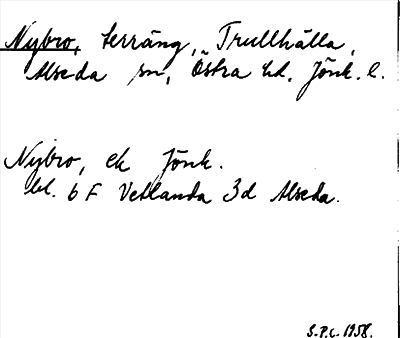 Nybro, terräng, Trullhälla,
Alseda sn, Östra hd, Jönk. l.
Nybro, ek Jönk.
bl. 6 F Vetlanda 3d Alseda.
S.P.L. 1958.